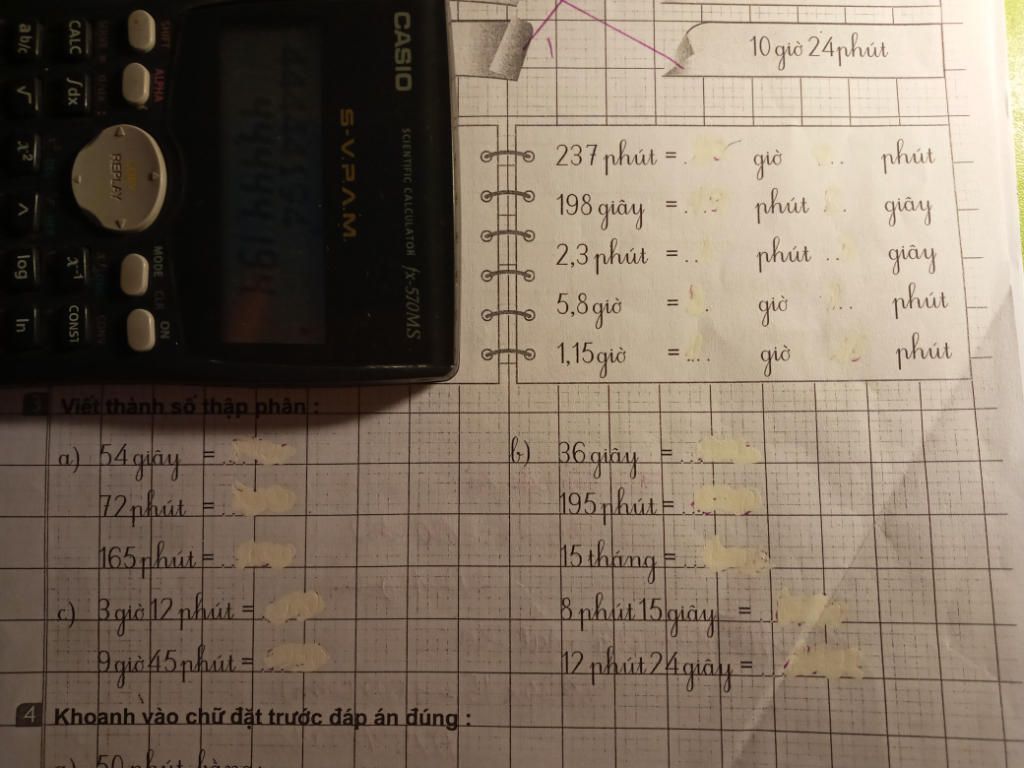 10 giờ 24 phút
CASIO
S-V.P.A.M.
SCIENTIFIC CALCULATOR fx-570MS
SHIFT
ALPHA
REPLAY
MODE CLR
ON
ab/c
CALC
∫dx
√
x²
^
log
x⁻¹
ln
CONST
237 phút = ... giờ ... phút
198 giây = ... phút ... giây
2,3 phút = ... phút ... giây
5,8 giờ = ... giờ ... phút
1,15 giờ = .... giờ ... phút
3 Viết thành số thập phân :
a) 54 giây = ...
b) 36 giây = ...
72 phút = ...
195 phút = ...
165 phút = ...
15 tháng = ...
c) 3 giờ 12 phút = ...
8 phút 15 giây = ...
9 giờ 45 phút = ...
12 phút 24 giây = ...
4 Khoanh vào chữ đặt trước đáp án đúng :